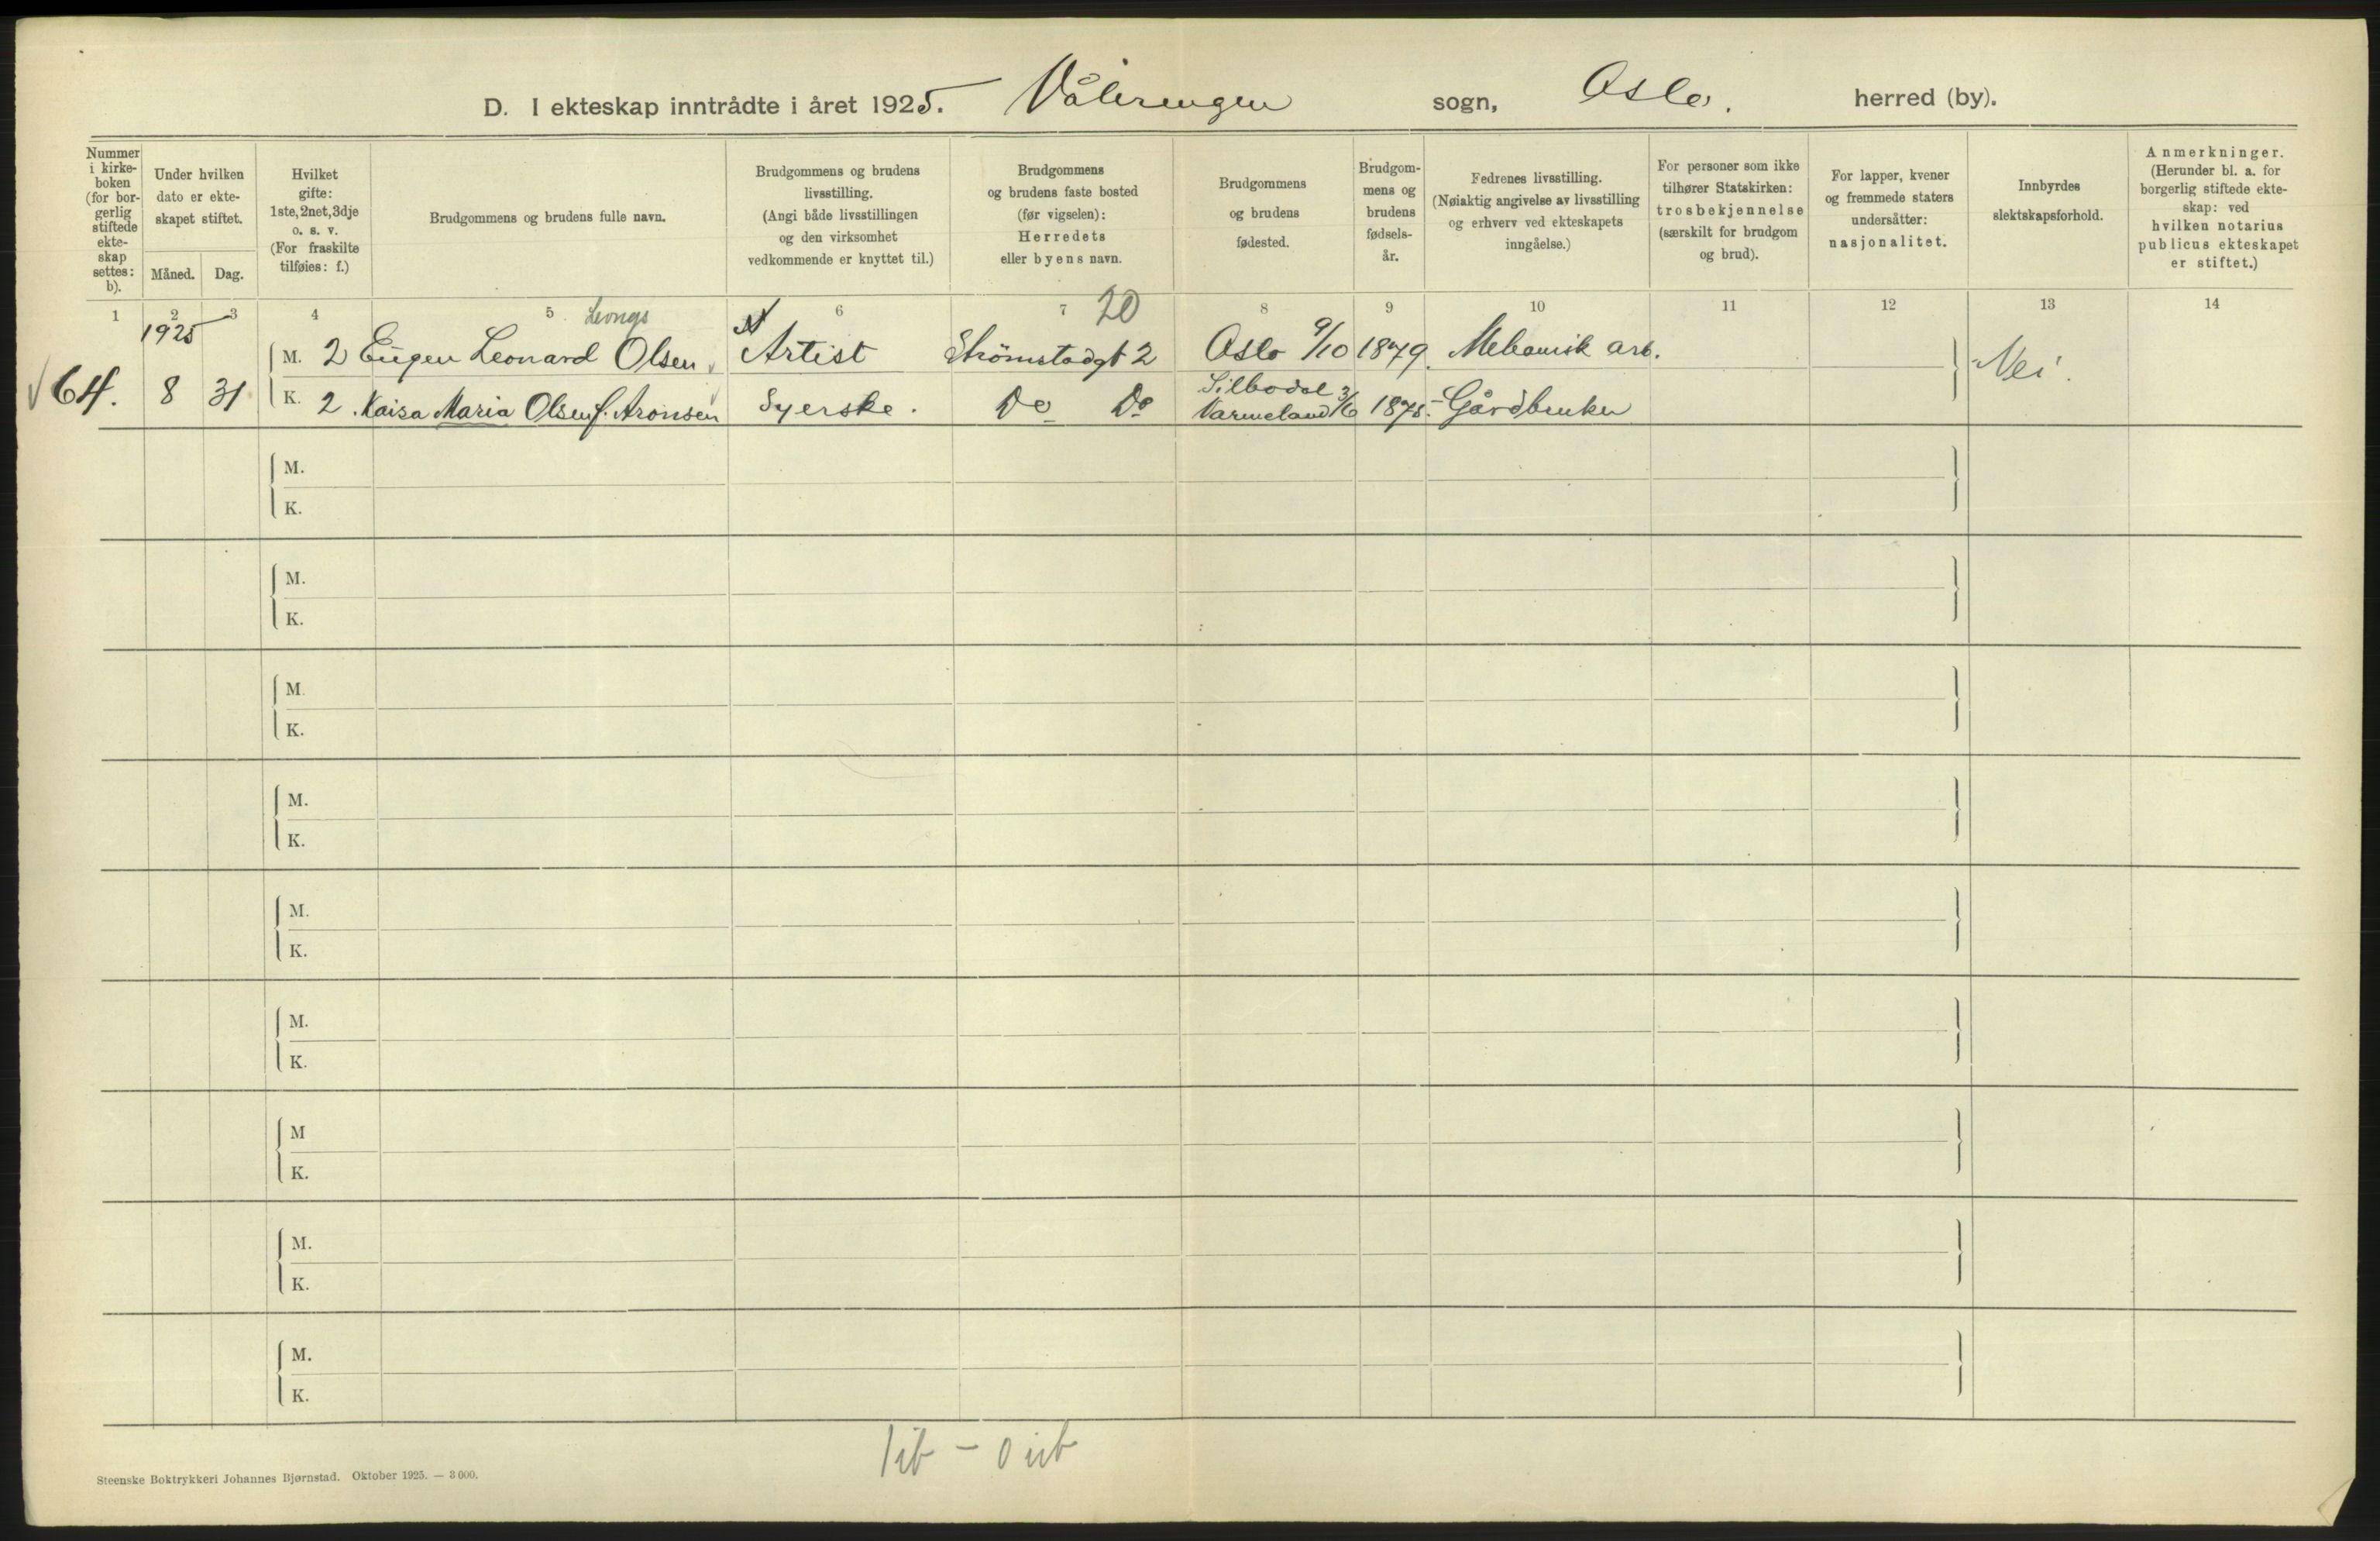 D. I ekteskap inntrådte i året 1925. Vålerengen sogn, Oslo. herred (by).
Nummer i kirke-boken (for bor-gerlig stiftede ekte-skap settes: b).
Under hvilken dato er ekte-skapet stiftet.
Måned. Dag.
Hvilket gifte: 1ste, 2net, 3dje o. s. v. (For fraskilte tilføies: f.)
Brudgommens og brudens fulle navn.
Brudgommens og brudens livsstilling. (Angi både livsstillingen og den virksomhet vedkommende er knyttet til.)
Brudgommens og brudens faste bosted (før vigselen): Herredets eller byens navn.
Brudgommens og brudens fødested.
Brudgom-mens og brudens fødsels-år.
Fedrenes livsstilling. (Nøiaktig angivelse av livsstilling og erhverv ved ekteskapets inngåelse.)
For personer som ikke tilhører Statskirken: trosbekjennelse (særskilt for brudgom og brud).
For lapper, kvener og fremmede staters undersåtter: nasjonalitet.
Innbyrdes slektskapsforhold.
Anmerkninger. (Herunder bl. a. for borgerlig stiftede ekte-skap: ved hvilken notarius publicus ekteskapet er stiftet.)
1 2 3 4 5 6 7 8 9 10 11 12 13 14
1925 20
M. 2 Eugen Leonard Olsen Artist Strømstadgt 2 Oslo 9/10 1879. Mekanisk arb. Nei.
64. 8 31 K. 2. Kaisa Maria Olsen f. Aronsen Syerske. Do Do Silbodal Varmeland 3/6 1875. Gårdbruker
M.
K.
M.
K.
M.
K.
M.
K.
M.
K.
M.
K.
M
K.
M.
K.
M.
K.
1 ib - 0 ub
Steenske Boktrykkeri Johannes Bjørnstad. Oktober 1925. — 3 000.